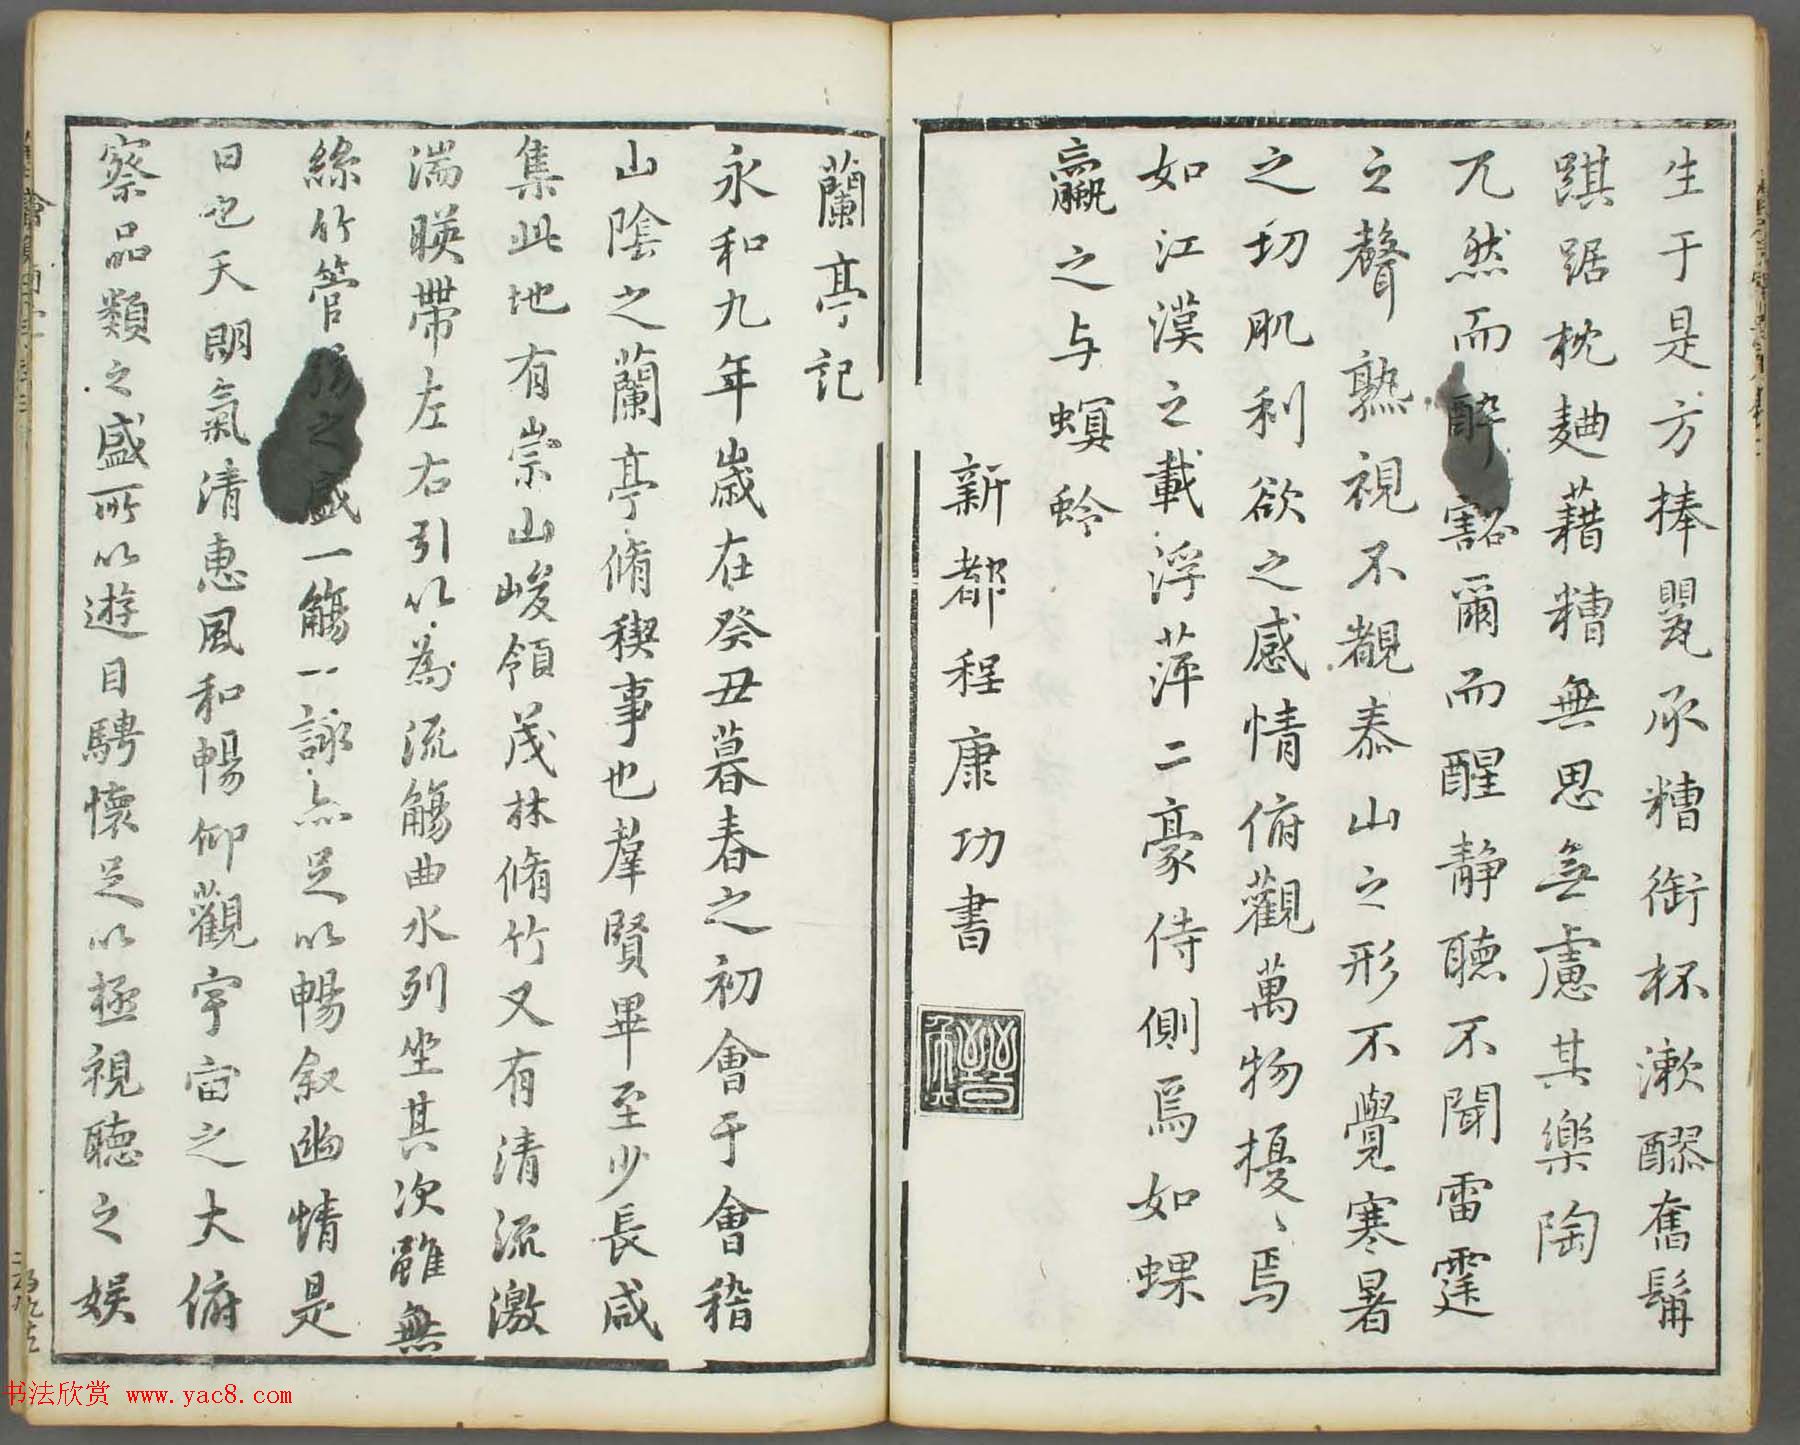 生于是方捧甖承糟銜杯漱醪奮髯
踑踞枕麯藉糟無思無慮其樂陶
兀然而醉豁爾而醒静聴不聞雷霆
之聲熟視不覩泰山之形不覺寒暑
之切肌利欲之感情俯觀萬物擾〻焉
如江漢之載浮萍二豪侍側焉如蜾
蠃之与螟蛉
新都程康功書
蘭亭記
永和九年歲在癸丑暮春之初會于會稽
山陰之蘭亭脩稧事也羣賢畢至少長咸
集此地有崇山峻領茂林脩竹又有清流激
湍暎帶左右引以為流觴曲水列坐其次雖無
絲竹管之盛一觴一詠亦足以暢叙幽情是
日也天朗氣清惠風和暢仰觀宇宙之大俯
察品類之盛所以遊目騁懷足以極視聴之娱
书法欣赏 www.yac8.com